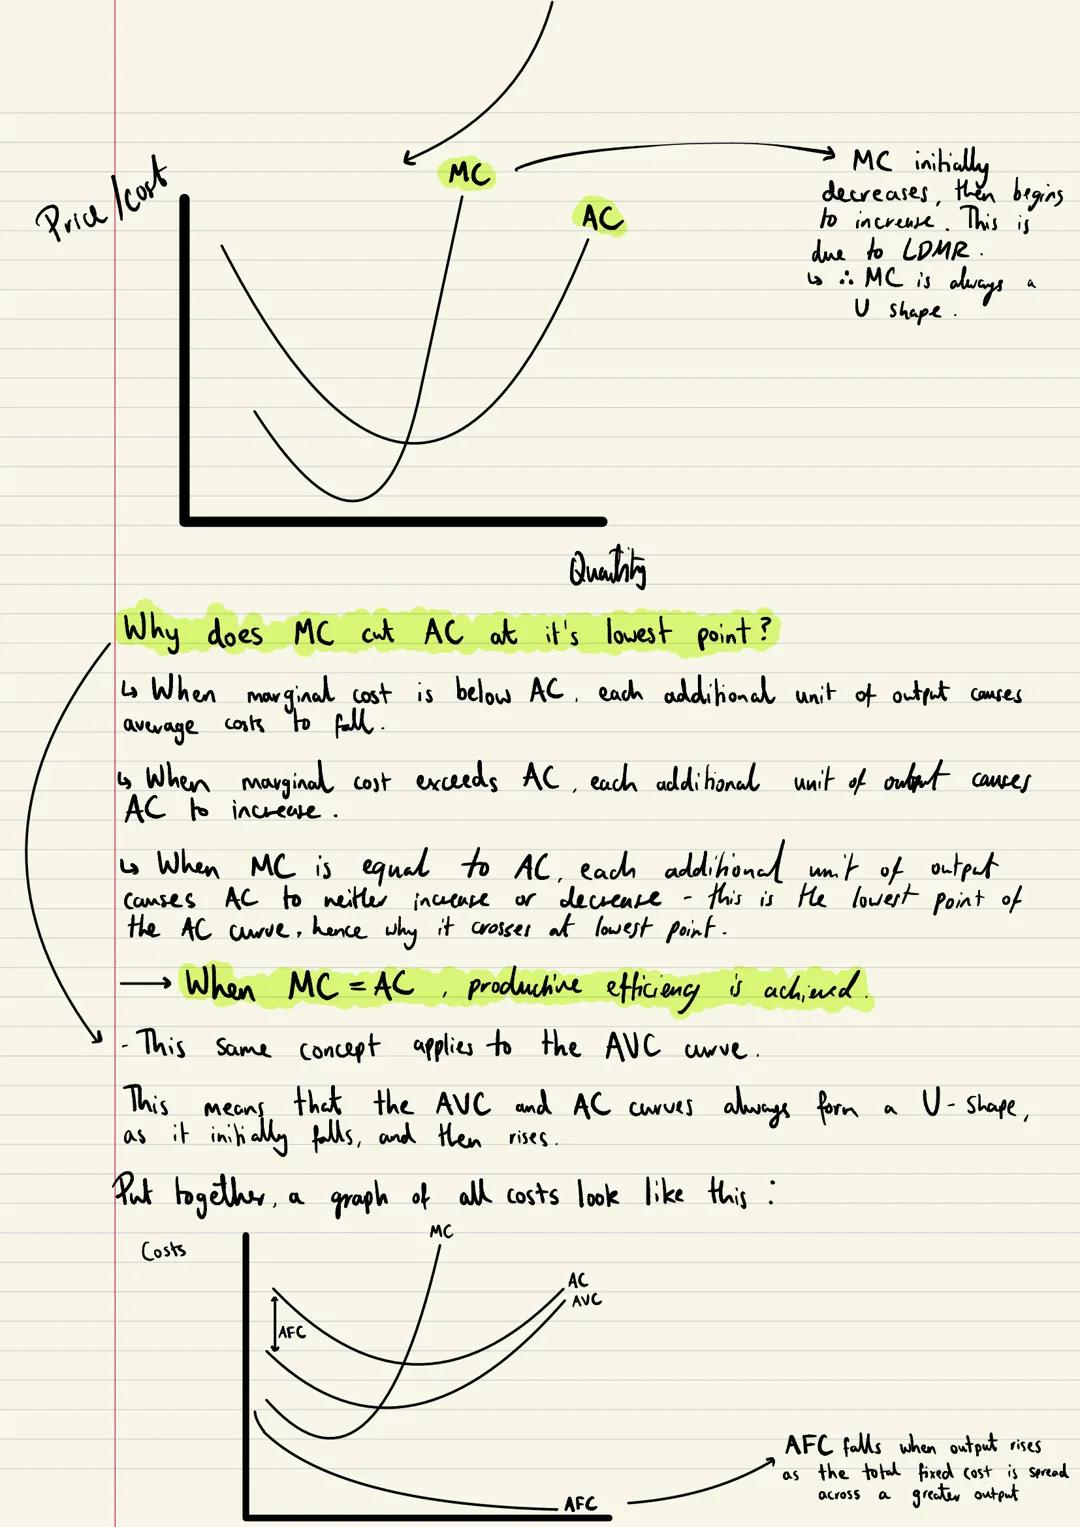 Price/cost
MC
AC
MC initially
decreases, then begins
to increase. This is
due to LDMR.
↳ ∴ MC is always a
U shape.
Quantity
Why does MC cut AC at it's lowest point?
↳ When marginal cost is below AC, each additional unit of output causes
average costs to fall.
↳ When marginal cost exceeds AC, each additional unit of output causes
AC to increase.
↳ When MC is equal to AC, each additional unit of output
causes AC to neither increase or decrease - this is the lowest point of
the AC curve, hence why it crosses at lowest point.
→ When MC = AC, productive efficiency is achieved.
- This same concept applies to the AVC curve.
This means that the AVC and AC curves always form a U-shape,
as it initially falls, and then rises.
Put together, a graph of all costs look like this:
Costs
MC
AC
AVC
AFC
AFC
AFC falls when output rises
as the total fixed cost is spread
across a greater output